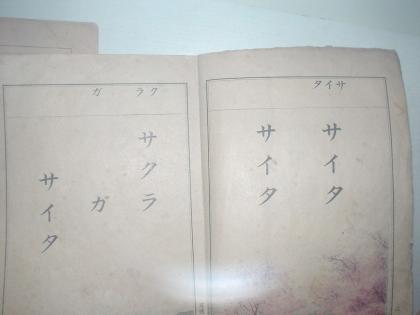 サイタ
サイタ
サイタ
クラ ガ
サクラ
ガ
サイタ